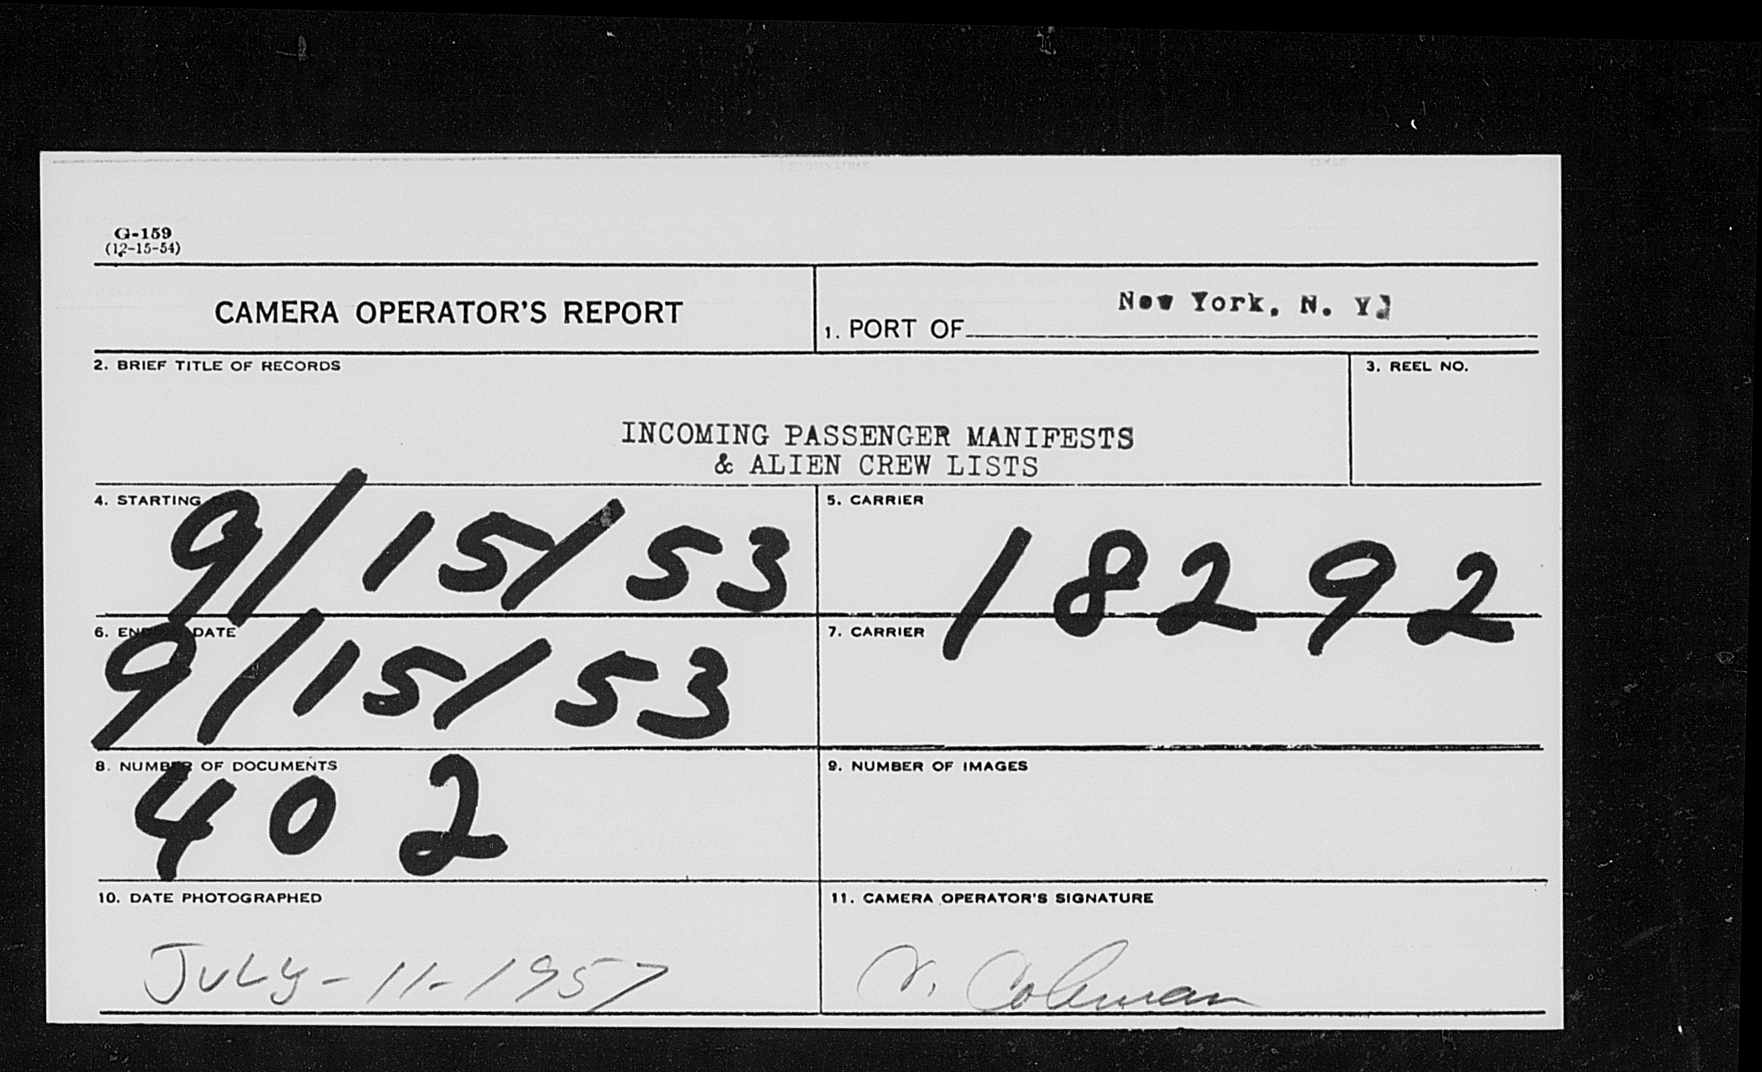 G-159
(12-15-54)
CAMERA OPERATOR'S REPORT
1. PORT OF New York, N. Y.
2. BRIEF TITLE OF RECORDS
3. REEL NO.
INCOMING PASSENGER MANIFESTS
& ALIEN CREW LISTS
4. STARTING
9/15/53
5. CARRIER
18292
6. ENDING DATE
9/15/53
7. CARRIER
8. NUMBER OF DOCUMENTS
402
9. NUMBER OF IMAGES
10. DATE PHOTOGRAPHED
JULY-11-1957
11. CAMERA OPERATOR'S SIGNATURE
Coleman